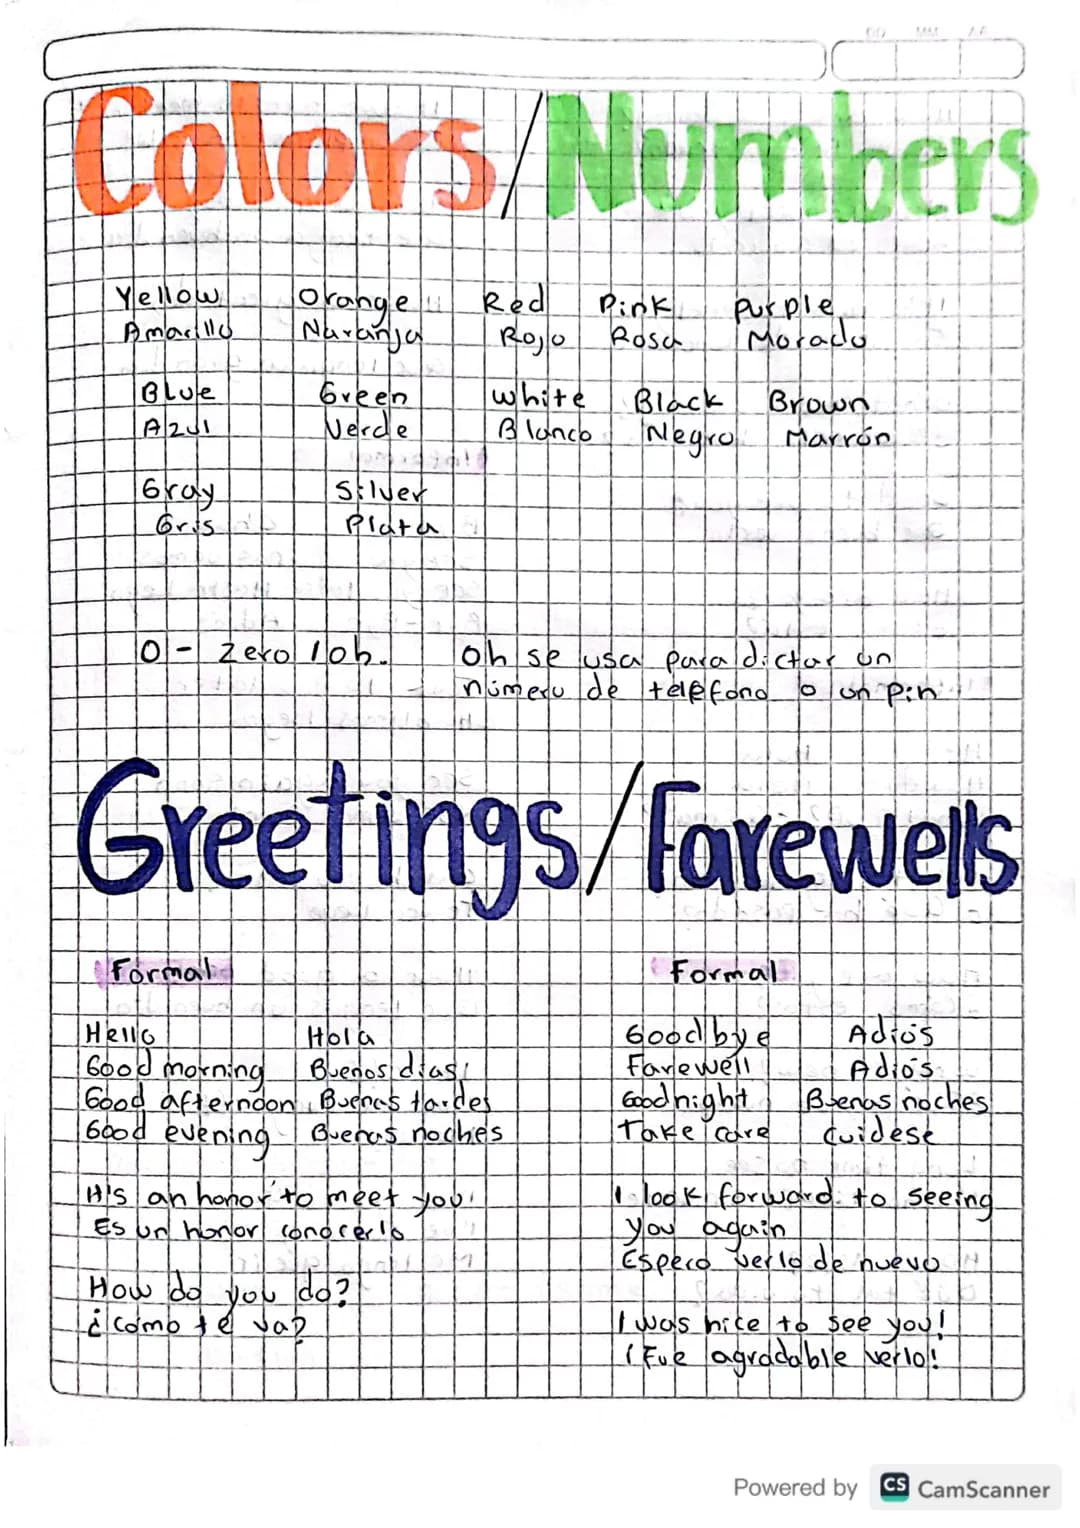 Colors/Numbers
Yellow Orange Red Pink Purple
Amarillo Naranja Rojo Rosa Morado
Blue Green White Black Brown
Azul Verde Blanco Negro Marrón
Gray Silver
Gris Plata
0 - zero / oh. Oh se usa para dictar un
número de teléfono o un pin
Greetings/Farewells
Formal Formal
Hello Hola Goodbye Adiós
Good morning Buenos dias Farewell Adiós
Good afternoon Buenas tardes Goodnight Buenas noches
Good evening Buenas noches Take care Cuidese
It's an honor to meet you I look forward to seeing
Es un honor conocerlo you again
Espero verlo de nuevo
How do you do?
¿como te va? I was nice to see you!
¡Fue agradable verlo!
Powered by CS CamScanner